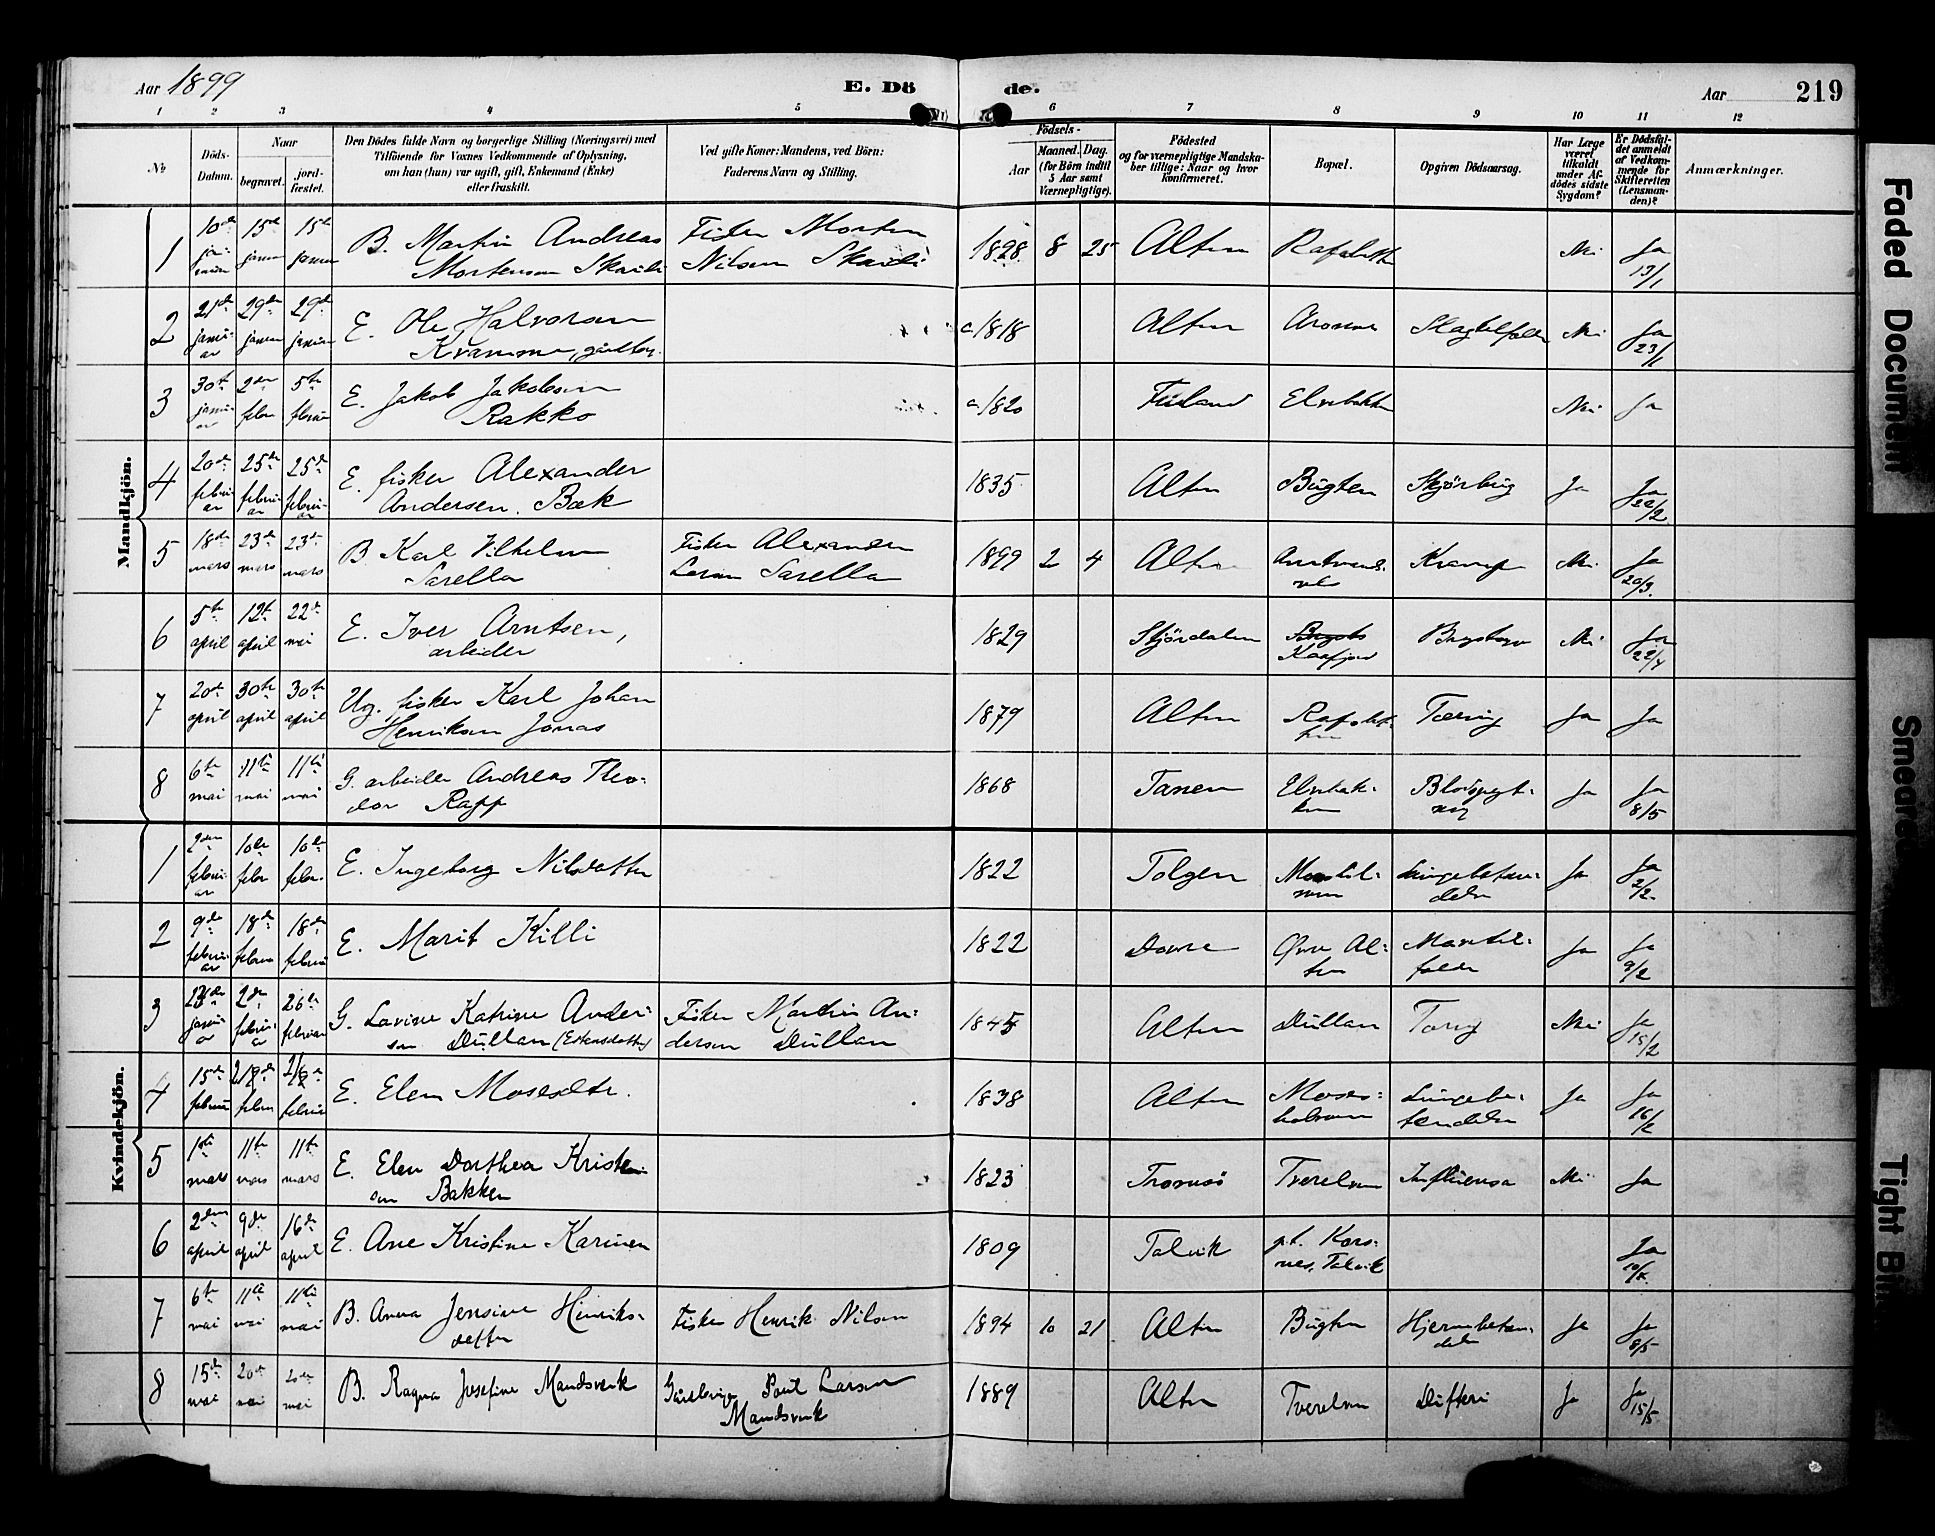 Aar 1899
E. Dö de.
Aar 219
1 2 3 4 5 6 7 8 9 10 11 12
No
Döds-Datum.
Naar
begravet.
jord-fæstet.
Den Dödes fulde Navn og borgerlige Stilling (Næringsvei) med
Tilföiende for Voxnes Vedkommende af Oplysning,
om han (hun) var ugift, gift, Enkemand (Enke)
eller fraskilt.
Ved gifte Koner: Mandens, ved Börn:
Faderens Navn og Stilling.
Födsels-
Aar
Maaned. Dag.
(for Börn indtil
5 Aar samt
Værnepligtige).
Födested
og for værnepligtige Mandska-
ber tillige: Naar og hvor
konfirmeret.
Bopæl.
Opgiven Dödsaarsag.
Har Læge
været
tilkaldt
under Af-
dödes sidste
Sygdom?
Er Dödsfal-
det anmeldt
af Vedkom-
mende for
Skifteretten
(Lensman-
den)?
Anmærkninger.
Mandkjön.
1 10de januar 15de januar 15de januar B. Martin Andreas Mortensen Skaidi Fisker Morten Nilsen Skaidi 1898 8 25 Alten Rafsbotn Nei Ja 13/1
2 21de januar 29de januar 29de januar E. Ole Halvorsen Kvamme, gårdbr. c. 1818 Alten Aronnes Slagtilfælde Nei Ja 23/1
3 30te januar 2den febr 5te februar E. Jakob Jakobsen Rakko c. 1820 Finland Elvebakken Nei Ja
4 20de februar 25de februar 25de februar E. fisker Alexander Andersen Bæk 1835 Alten Bugten Skjörbug Ja Ja 22/2
5 18de mars 23de mars 23de mars B. Karl Vilhelm Sarella Fisker Alexander Larsen Sarella 1899 2 4 Alten Krampe Nei Ja 20/3.
6 5te april 12te april 22de mai E. Iver Arntsen, arbeider 1829 Stjördalen Kaafjord Brystsyge Nei Ja 22/4
7 20de april 30te april 30te april Ug. fisker Karl Johan Henriksen Jonas 1879 Alten Rafsbotten Tæring Ja Ja
8 6te mai 11te mai 11te mai G. arbeider Andreas Theodor Rapp 1868 Tanen Elvebakken Blodspytning Ja Ja 8/5
Kvindekjön.
1 2den februar 10de febr 10de febr. E. Ingeborg Nilsdatter 1822 Tolgen Lungebetændelse Ja Ja 2/2.
2 9de februar 18de februar 18de februar E. Marit Killi 1822 Dovre Övre Alten Ja Ja 9/2
3 januar 2de februar 26de februar G. Lavine Katrine Andersen Dullan (Estensdatter) Fisker Martin Andersen Dullan 1845 Alten Dullan Tæring Nei Ja 15/2
4 15de februar februar E. Elen Mosesdtr. 1838 Alten Mosesholmen Lungebetændelse Ja Ja 16/2
5 1ste mars 11te mars 11te mars E. Elen Dorthea Kristensen Bakken 1823 Tromsö Tverelven Influensa Nei Ja
6 2den april 9de april 16de april E. Ane Kristine Karinen 1809 Talvik p.t. Korsnes, Talvik Ja 10/4.
7 6te mai 11te mai 11te mai B. Anna Jensine Henriksdatter Fisker Henrik Nilsen 1894 10 21 Alten Bugten Hjernebetændelse Ja Ja 8/5
8 15de mai 20de mai 20de mai B. Ragna Josefine Mandsverk Gårdbruger Poul Larsen Mandsverk 1889 Alten Tverelven Difteri Ja Ja 15/5
Faded Document
Smeared
Tight Bi